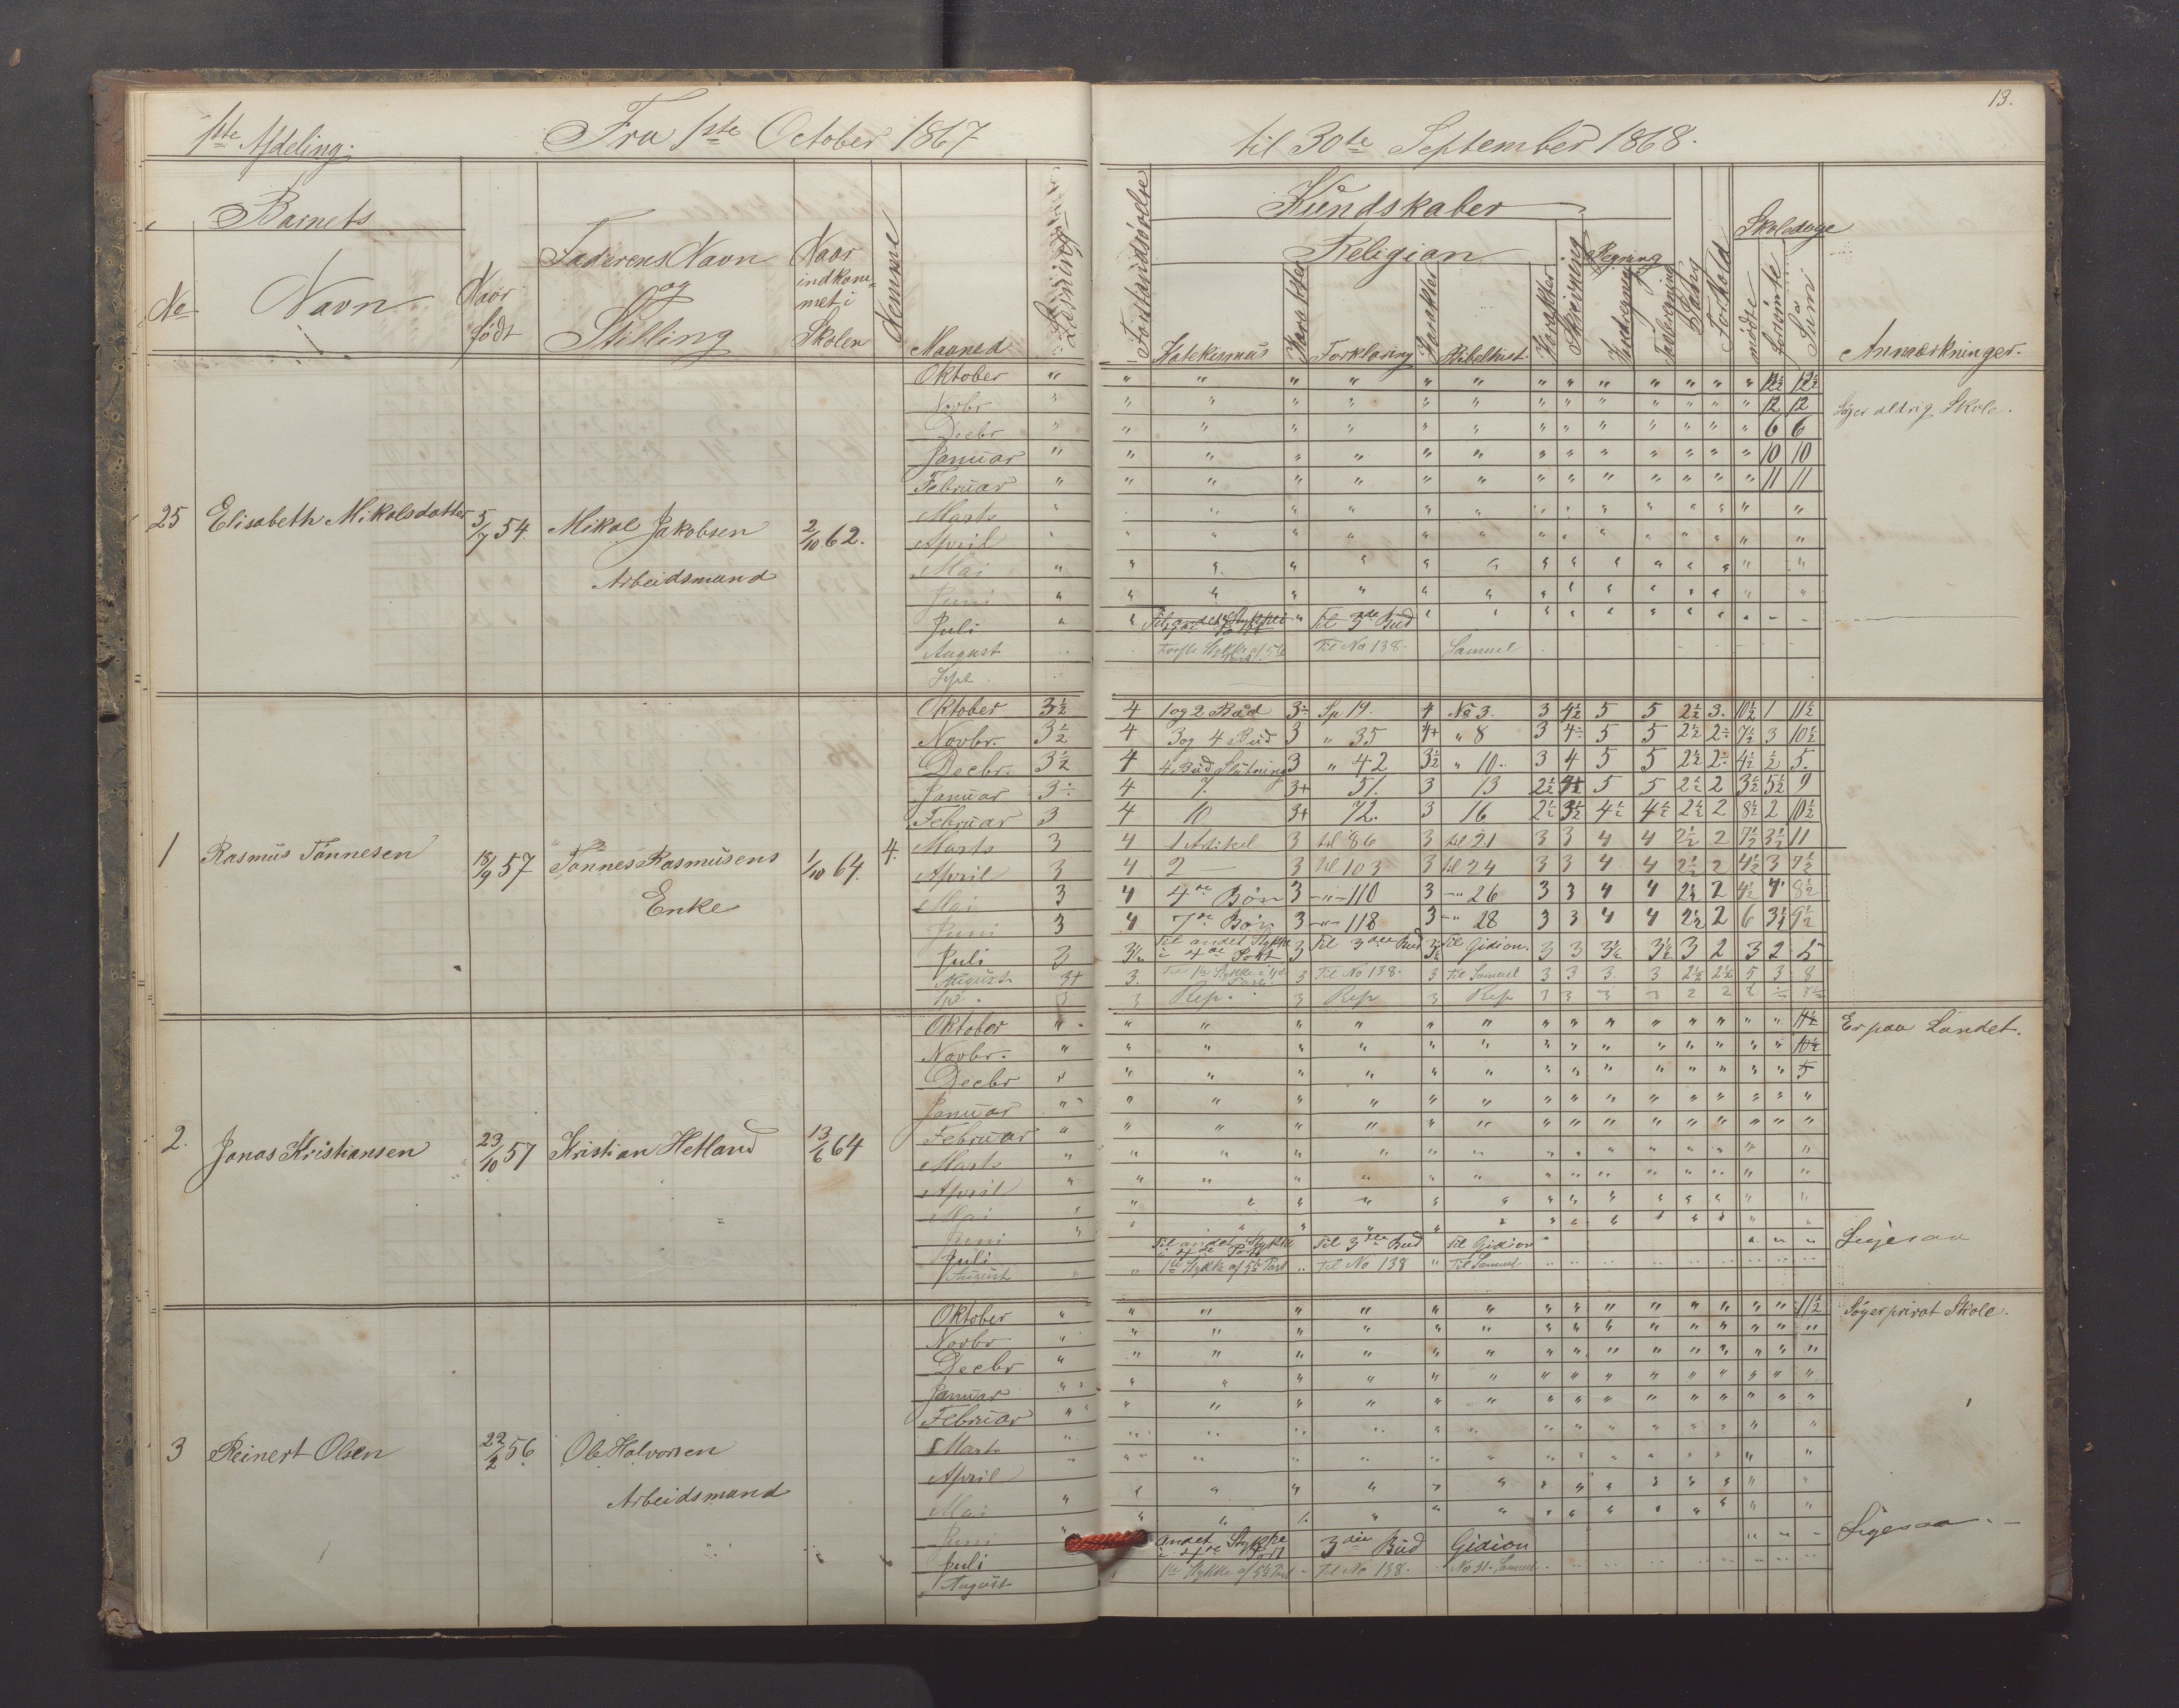 1ste Afdeling.
Fra 1ste October 1867
til 30te September 1868.
13.
Barnets
No
Navn
Naar født
Faderens Navn og Stilling
Naar indkommet i Skolen
Maaned
Læsning
Forstandsøvelse
Kundskaber
Religion
Katekismus
Karakter
Forklaring
Karakter
Bibelhist.
Karakter
Skrivning
Regning
Sang
Forhold
Skoledage
mødte
forsømte
Sum
Anmærkninger.
25 Elisabeth Mikalsdatter 5/7 54. Mikal Jakobsen 2/10 62.
Arbeidsmand
Oktober " " " " " " " " " " " " " " " 12½ 12½
Novbr " " " " " " " " " " " " " " " 12 12 Søger aldrig Skole.
Decbr " " " " " " " " " " " " " " " 6 6
Januar " " " " " " " " " " " " " " " 10 10
Februar " " " " " " " " " " " " " " " 11 11
Marts
April
Mai
Juni
Juli Til andet Stykke Til 3die Bud
August Til No 138. Samuel
Sept
1 Rasmus Tønnesen 18/9 57 Tønnes Rasmusens 1/10 64. 4.
Enke
Oktober 3½ 4 1 og 2 Bud 3÷ Sp 19. 4 No 3. 3 4½ 5 5 2½ 3. 10½ 1 11½
Novbr. 3½ 4 3 og 4 Bud 3 " 35 4+ " 8 3 4÷ 5 5 2½ 2÷ 7½ 3 10½
Decbr. 3½ 4 4 Bud Slutning 3 " 42 3½ " 10. 3 4 5 5 2½ 2÷ 4½ ½ 5.
Januar 3÷ 4 7. 3+ 51. 3 13 2½ 4+ 5 5 2½ 2 3½ 5½ 9
Februar 3 4 10 3+ 72. 3 16 2½ 3½ 4½ 4½ 2½ 2 8½ 2 10½
Marts 3 4 1 Artikel 3 til 86 3 til 21 3 3 4 4 2½ 2 7½ 3½ 11
April 3 4 2 — 3 til 103 3 til 24 3 3 4 4 2½ 2 4½ 3 7½
Mai 3 4 4de Bøn 3 -"- 110 3 -" 26 3 3 4 4 2½ 2 4½ 4 8½
Juni 3 4 7de Bøn 3 -"- 118 3 -" 28 3 3 4 4 2½ 2 6 3½ 9½
Juli 3 3½ Til andet Stykke i 4de Part 3 Til 3die Bud 3½ Til Gidion. 3 3 3½ 3½ 3 2 3 2 5
August 3+ 3. 3 Til No 138. 3 Til Samuel 3 3 3. 3 2½ 2½ 5 3 8
3 3 Rep. 3 Rep 3 Rep 3 3 3 3 2 2
2. Jonas Kristiansen 23/10 57 Kristian Hetland 13/6 64
Oktober " " " " " " " " " " " " " " " " 11½ Er paa Landet.
Novbr. " " " " " " " " " " " " " " " " 10½
Decbr " " " " " " " " " " " " " " " " 5
Januar
Februar
Marts
April
Mai
Juni
Juli Til andet Stykke i 4de Part Til 3die Bud Til Gidion Ligesaa
August 1ste Stykke af 5te Part Til No 138 Til Samuel
3 Reinert Olsen 22/2 56. Ole Halvorsen
Arbeidsmand
Oktober " " " " " " " " " " " " " " " " 11½ Søger privat Skole.
Novbr
Decbr
Januar
Februar
Marts
April
Mai
Juni
Juli andet Stykke i 4de Part 3die Bud Gidion Ligesaa.
August 1ste Stykke af 5te Part Til No 138. No 31. Samuel